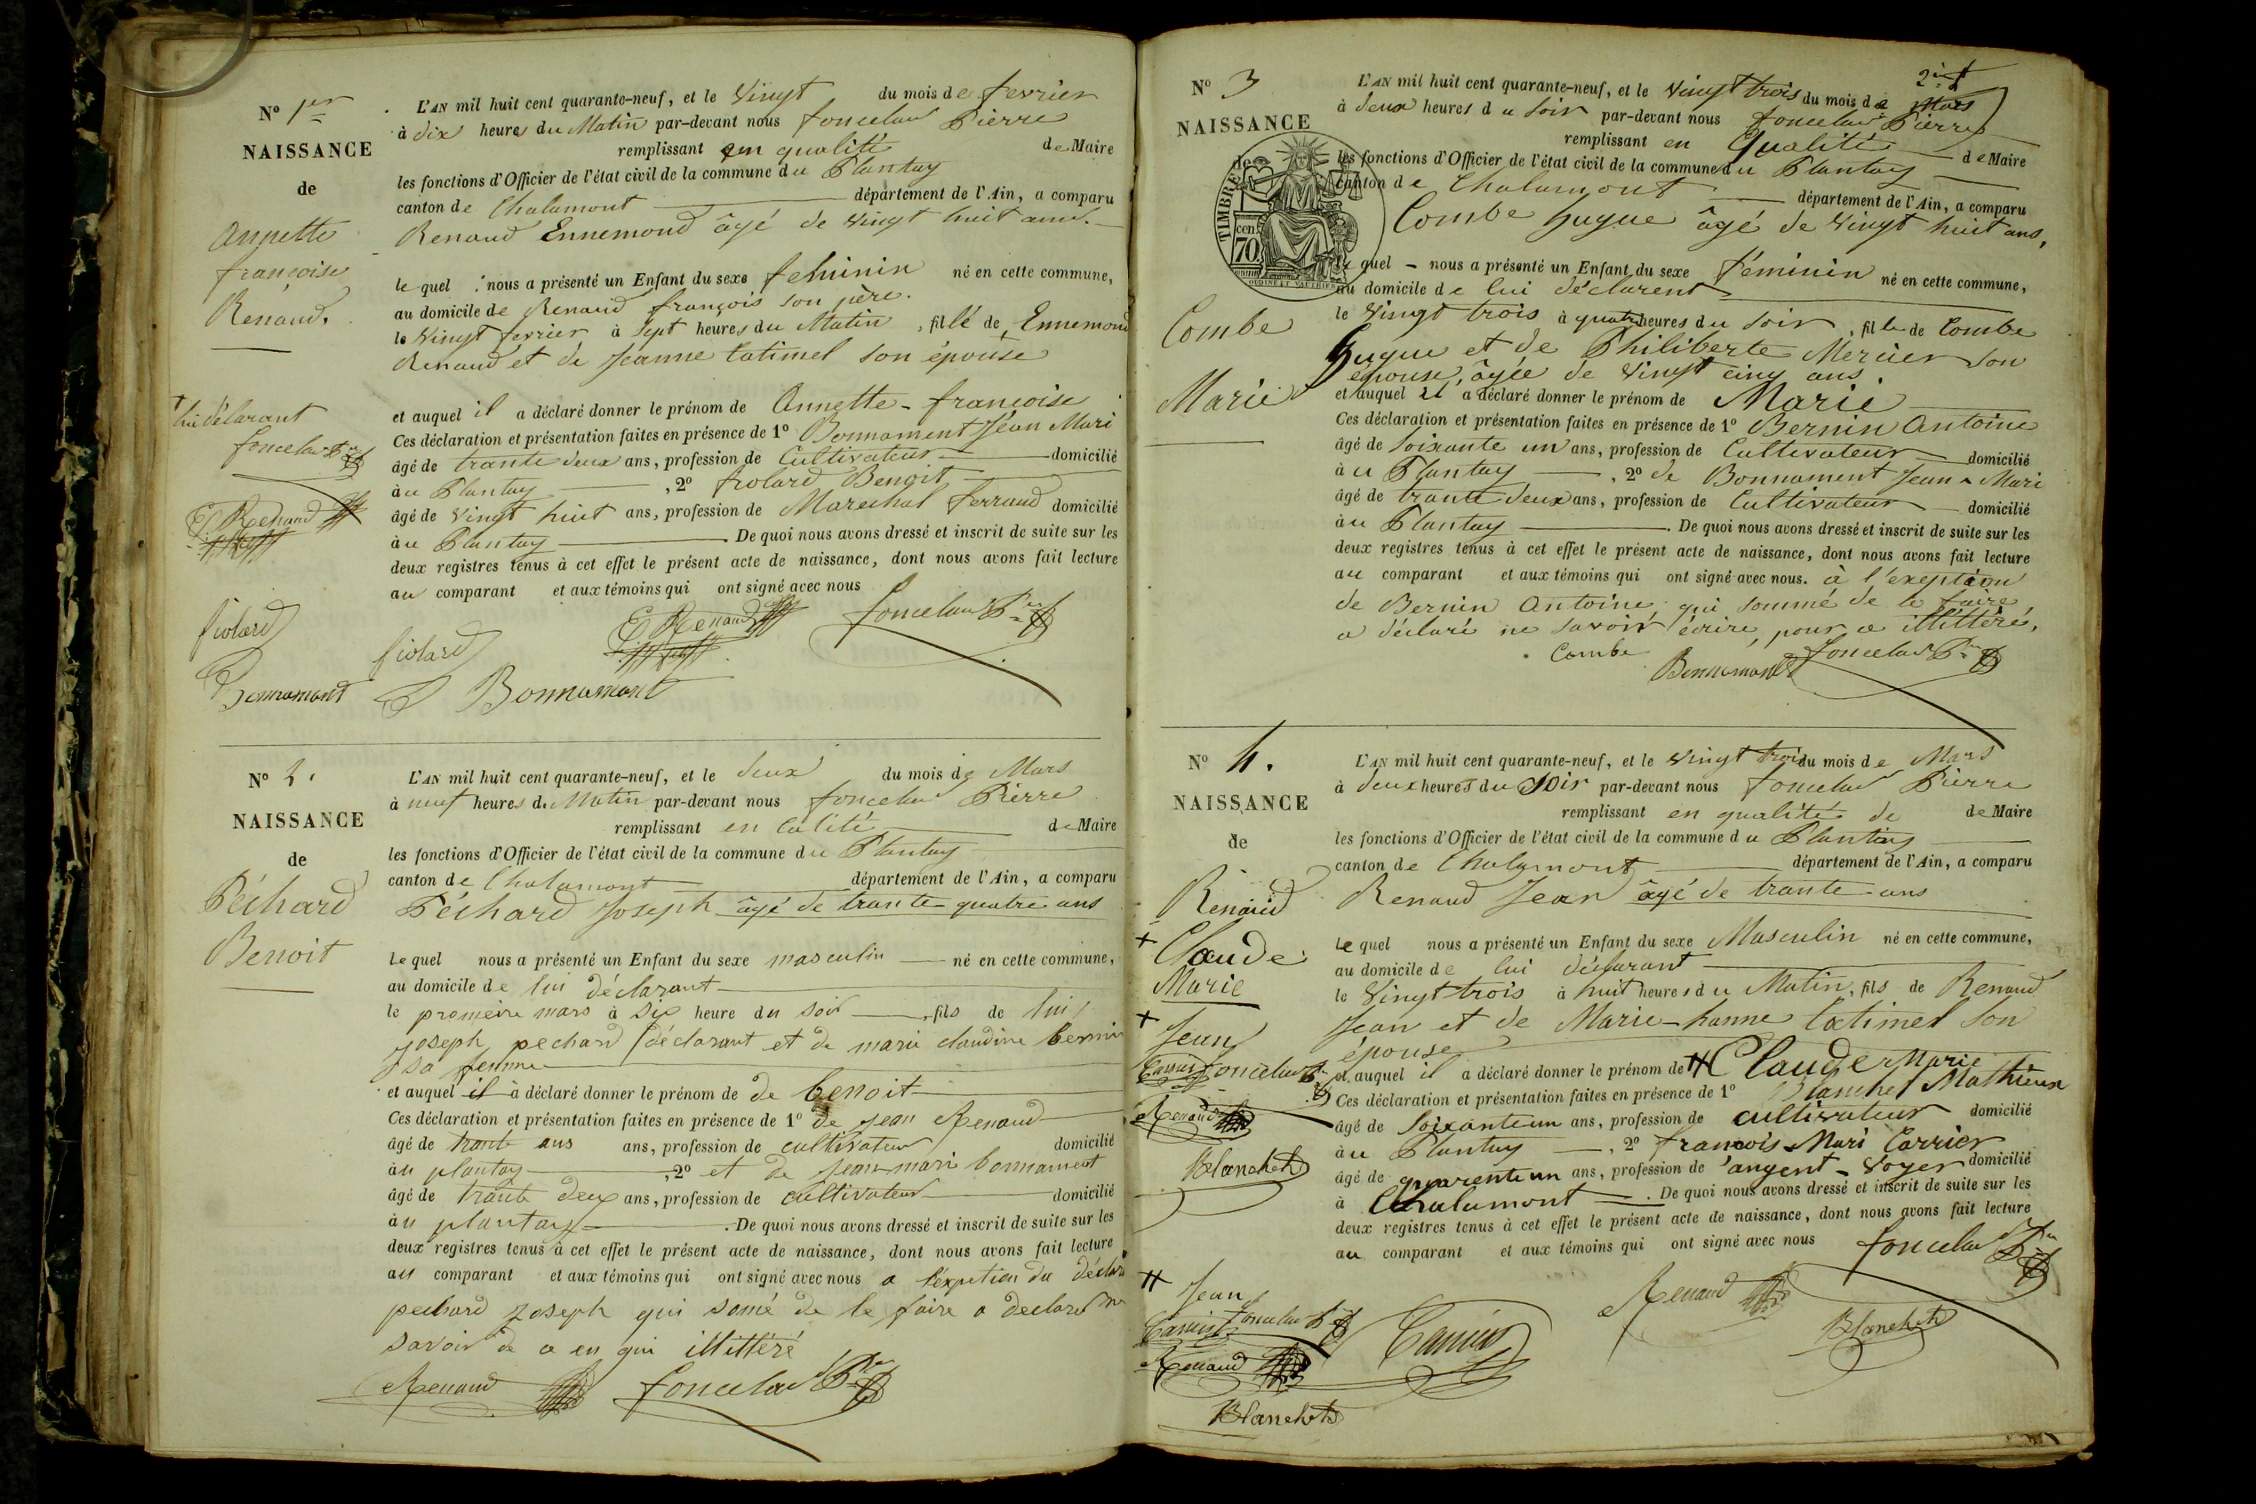 N° 1er
NAISSANCE
de
Annette
françoise
Renaud.
L'AN mil huit cent quarante-neuf, et le Vingt du mois de fevrier
à dix heures du Matin par-devant nous foncelas Pierre
remplissant en qualité de Maire
les fonctions d'Officier de l'état civil de la commune du Plantay
canton de Chalamont département de l'Ain, a comparu
Renaud Ennemond âgé de Vingt huit ans.
le quel nous a présenté un Enfant du sexe feminin né en cette commune,
au domicile de Renaud françois son père.
le Vingt fevrier à Sept heures du Matin, fille de Ennemond
Renaud et de Jeanne Catimel son épouse
et auquel il a déclaré donner le prénom de Annette-françoise
Ces déclaration et présentation faites en présence de 1° Bonnament Jean Mari
âgé de trante deux ans, profession de Cultivateur domicilié
àu Plantay, 2° fiolard Benoit
âgé de Vingt huit ans, profession de Marechal ferrand domicilié
àu Plantay. De quoi nous avons dressé et inscrit de suite sur les
deux registres tenus à cet effet le présent acte de naissance, dont nous avons fait lecture
au comparant et aux témoins qui ont signé avec nous
lui déclarant
foncelas Pre
E Renaud
fiolard
Bonnamant
E Renaud
foncelas Pre
fiolard
Bonnamant
N° 2.
NAISSANCE
de
Péchard
Benoit
L'AN mil huit cent quarante-neuf, et le deux du mois de Mars
à neuf heures du Matin par-devant nous foncelas Pierre
remplissant en calité de Maire
les fonctions d'Officier de l'état civil de la commune du Plantay
canton de Chalamont département de l'Ain, a comparu
Péchard Joseph âgé de trante quatre ans
Le quel nous a présenté un Enfant du sexe masculin né en cette commune,
au domicile de lui déclarant
le premeire mars à Six heure du soir, fils de lui
joseph pechard déclarant et de marie claudine bernin
sa femme
et auquel il à déclaré donner le prénom de de benoit
Ces déclaration et présentation faites en présence de 1° de jean Renaud
âgé de trante ans ans, profession de cultivateur domicilié
àu plantay, 2° et de jean mari bonnament
âgé de trante deux ans, profession de cultivateur domicilié
àu plantay. De quoi nous avons dressé et inscrit de suite sur les
deux registres tenus à cet effet le présent acte de naissance, dont nous avons fait lecture
au comparant et aux témoins qui ont signé avec nous a l'exption du déclar
pechard joseph qui somé de le faire a declaré ne
savoir de a en qui illittéré
Renaud
foncelas Pre
N° 3
NAISSANCE
de
TIMBRE
cen. 70
Combe
Marie
2ist
L'AN mil huit cent quarante-neuf, et le Vingt trois du mois de Mars
à deux heures du soir par-devant nous foncelas Pierre
remplissant en Qualité de Maire
les fonctions d'Officier de l'état civil de la commune du Plantay
canton de Chalamont département de l'Ain, a comparu
Combe hugue âgé de Vingt huit ans,
le quel - nous a présenté un Enfant du sexe féminin né en cette commune,
au domicile de lui déclarent
le Vingt trois à quatre heures du soir, fille de Combe
hugue et de Philiberte Mercier son
épouse, âgée de Vingt cinq ans
et auquel il a déclaré donner le prénom de Marie
Ces déclaration et présentation faites en présence de 1° Bernin Antoine
âgé de Soixante un ans, profession de Cultivateur domicilié
àu Plantay, 2° de Bonnament Jean Mari
âgé de trante deux ans, profession de Cultivateur domicilié
àu Plantay. De quoi nous avons dressé et inscrit de suite sur les
deux registres tenus à cet effet le présent acte de naissance, dont nous avons fait lecture
au comparant et aux témoins qui ont signé avec nous. à l'exeption
de Bernin Antoine, qui sommé de le faire,
a déclaré ne savoir écrire, pour a illittéré,
Combe
Bonnamant
foncelas Pre
N° 4.
NAISSANCE
de
Renaud
+ Claude
Marie
+ Jean
Carrier
foncelas Pre
Renaud
Blanchet
L'AN mil huit cent quarante-neuf, et le Vingt trois du mois de Mars
à deux heures du Soir par-devant nous foncelas Pierre
remplissant en qualité de de Maire
les fonctions d'Officier de l'état civil de la commune du Plantay
canton de Chalamont département de l'Ain, a comparu
Renaud Jean âgé de trante ans
Le quel nous a présenté un Enfant du sexe Masculin né en cette commune,
au domicile de lui déclarant
le Vingt trois à huit heures du Matin, fils de Renaud
Jean et de Marie-hanne Catimel Son
épouse
et auquel il a déclaré donner le prénom de # Claude Marie
Ces déclaration et présentation faites en présence de 1° Blanchet Mathieux
âgé de Soixanteun ans, profession de cultivateur domicilié
àu Plantay, 2° francois Mari Carrier
âgé de quarenteun ans, profession de angent-Voyer domicilié
à Chalamont. De quoi nous avons dressé et inscrit de suite sur les
deux registres tenus à cet effet le présent acte de naissance, dont nous avons fait lecture
au comparant et aux témoins qui ont signé avec nous
foncelas Pre
# Jean
Carrier
foncelas Pre
Renaud
Blanchet
Carrier
Renaud
Blanchet